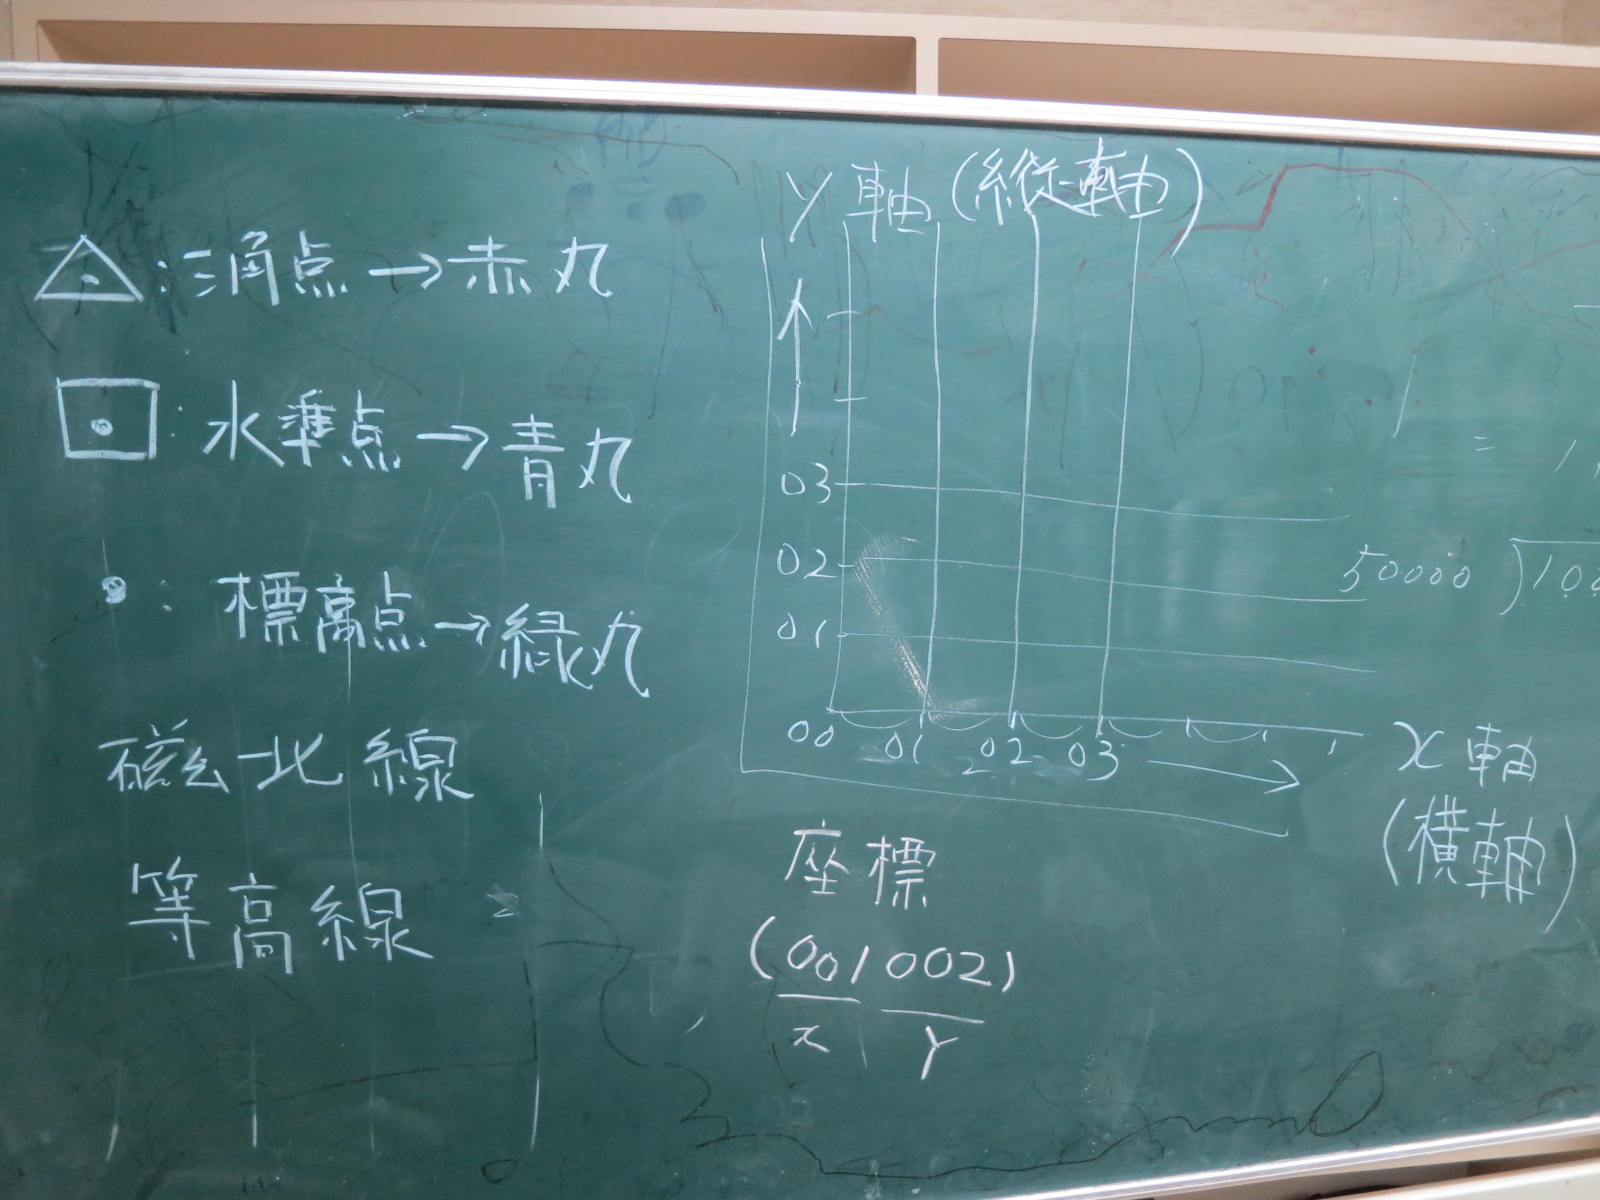 △:三角点→赤丸
:水準点→青丸
:標高点→緑丸
磁北線
等高線
y軸(縦軸)
03
02
01
00 01 02 03
x軸
(横軸)
座標
(001002)
x y
50000